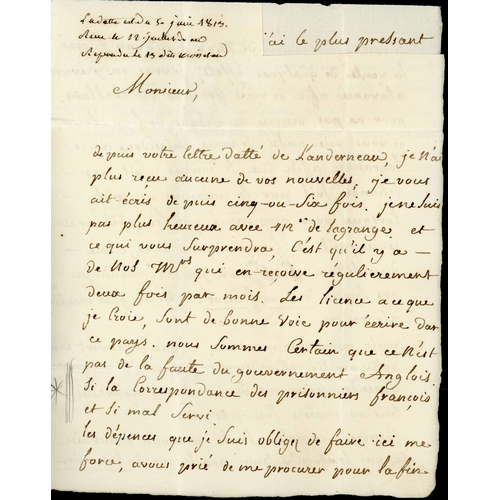 La datte est du 30 juin 1813.
Recu le 12 juillet
Repondu le 15 dit
j'ai le plus pressant
Monsieur,
depuis votre lettre datté de Landerneau, je n'ai
plus reçu aucune de vos nouvelles, je vous
ait écris de puis cinq ou Six fois. je ne Suis
pas plus heureux avec Mr. de lagrange et
ce qui vous Surprendra, C'est qu'il y a —
de Nos Mrs qui en reçoive régulierement
deux fois par mois. Les licence a ce que
je Croie, Sont de bonne Voie pour écrire dans
ce pays. nous Sommes Certain que ce N'est
pas de la faute du gouvernement Anglois
Si la Correspondance des prisonniers françois
et Si mal Servi.
les dépences que je Suis obligez de faire ici me
force, a vous prié de me procurer pour la fin